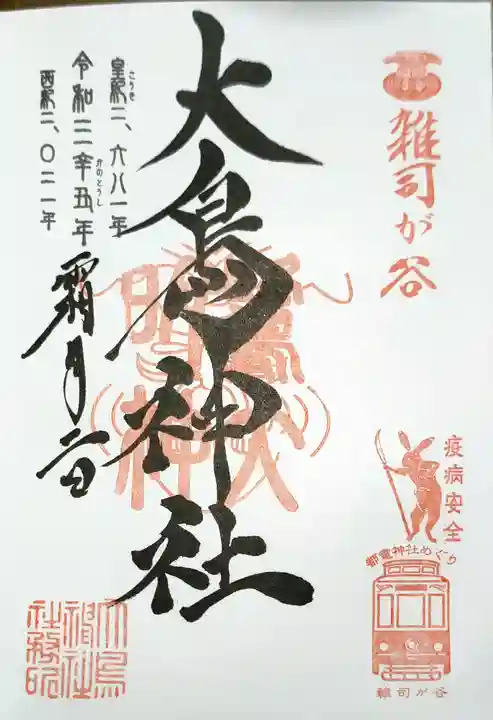 雑司が谷
疫病安全
都電神社めぐり
雑司が谷
大鳥神社
皇紀二、六八一年
こうき
令和三辛丑年
かのとうし
西暦二、〇二一年
霜月二日
大鳥
神社
社務所